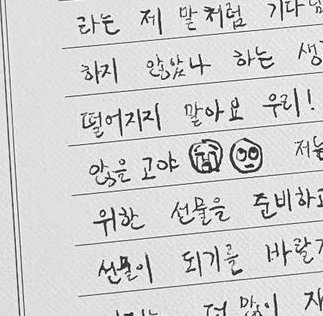 라는 제 말처럼 기다
하지 않았나 하는 생
떨어지지 말아요 우리!
않을 고야 😭🙄 저는
위한 선물을 준비하고
선물이 되기를 바랄
더 많이